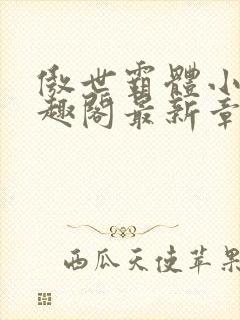 傲世霸體小
趣閣最新章
西瓜天使苹果